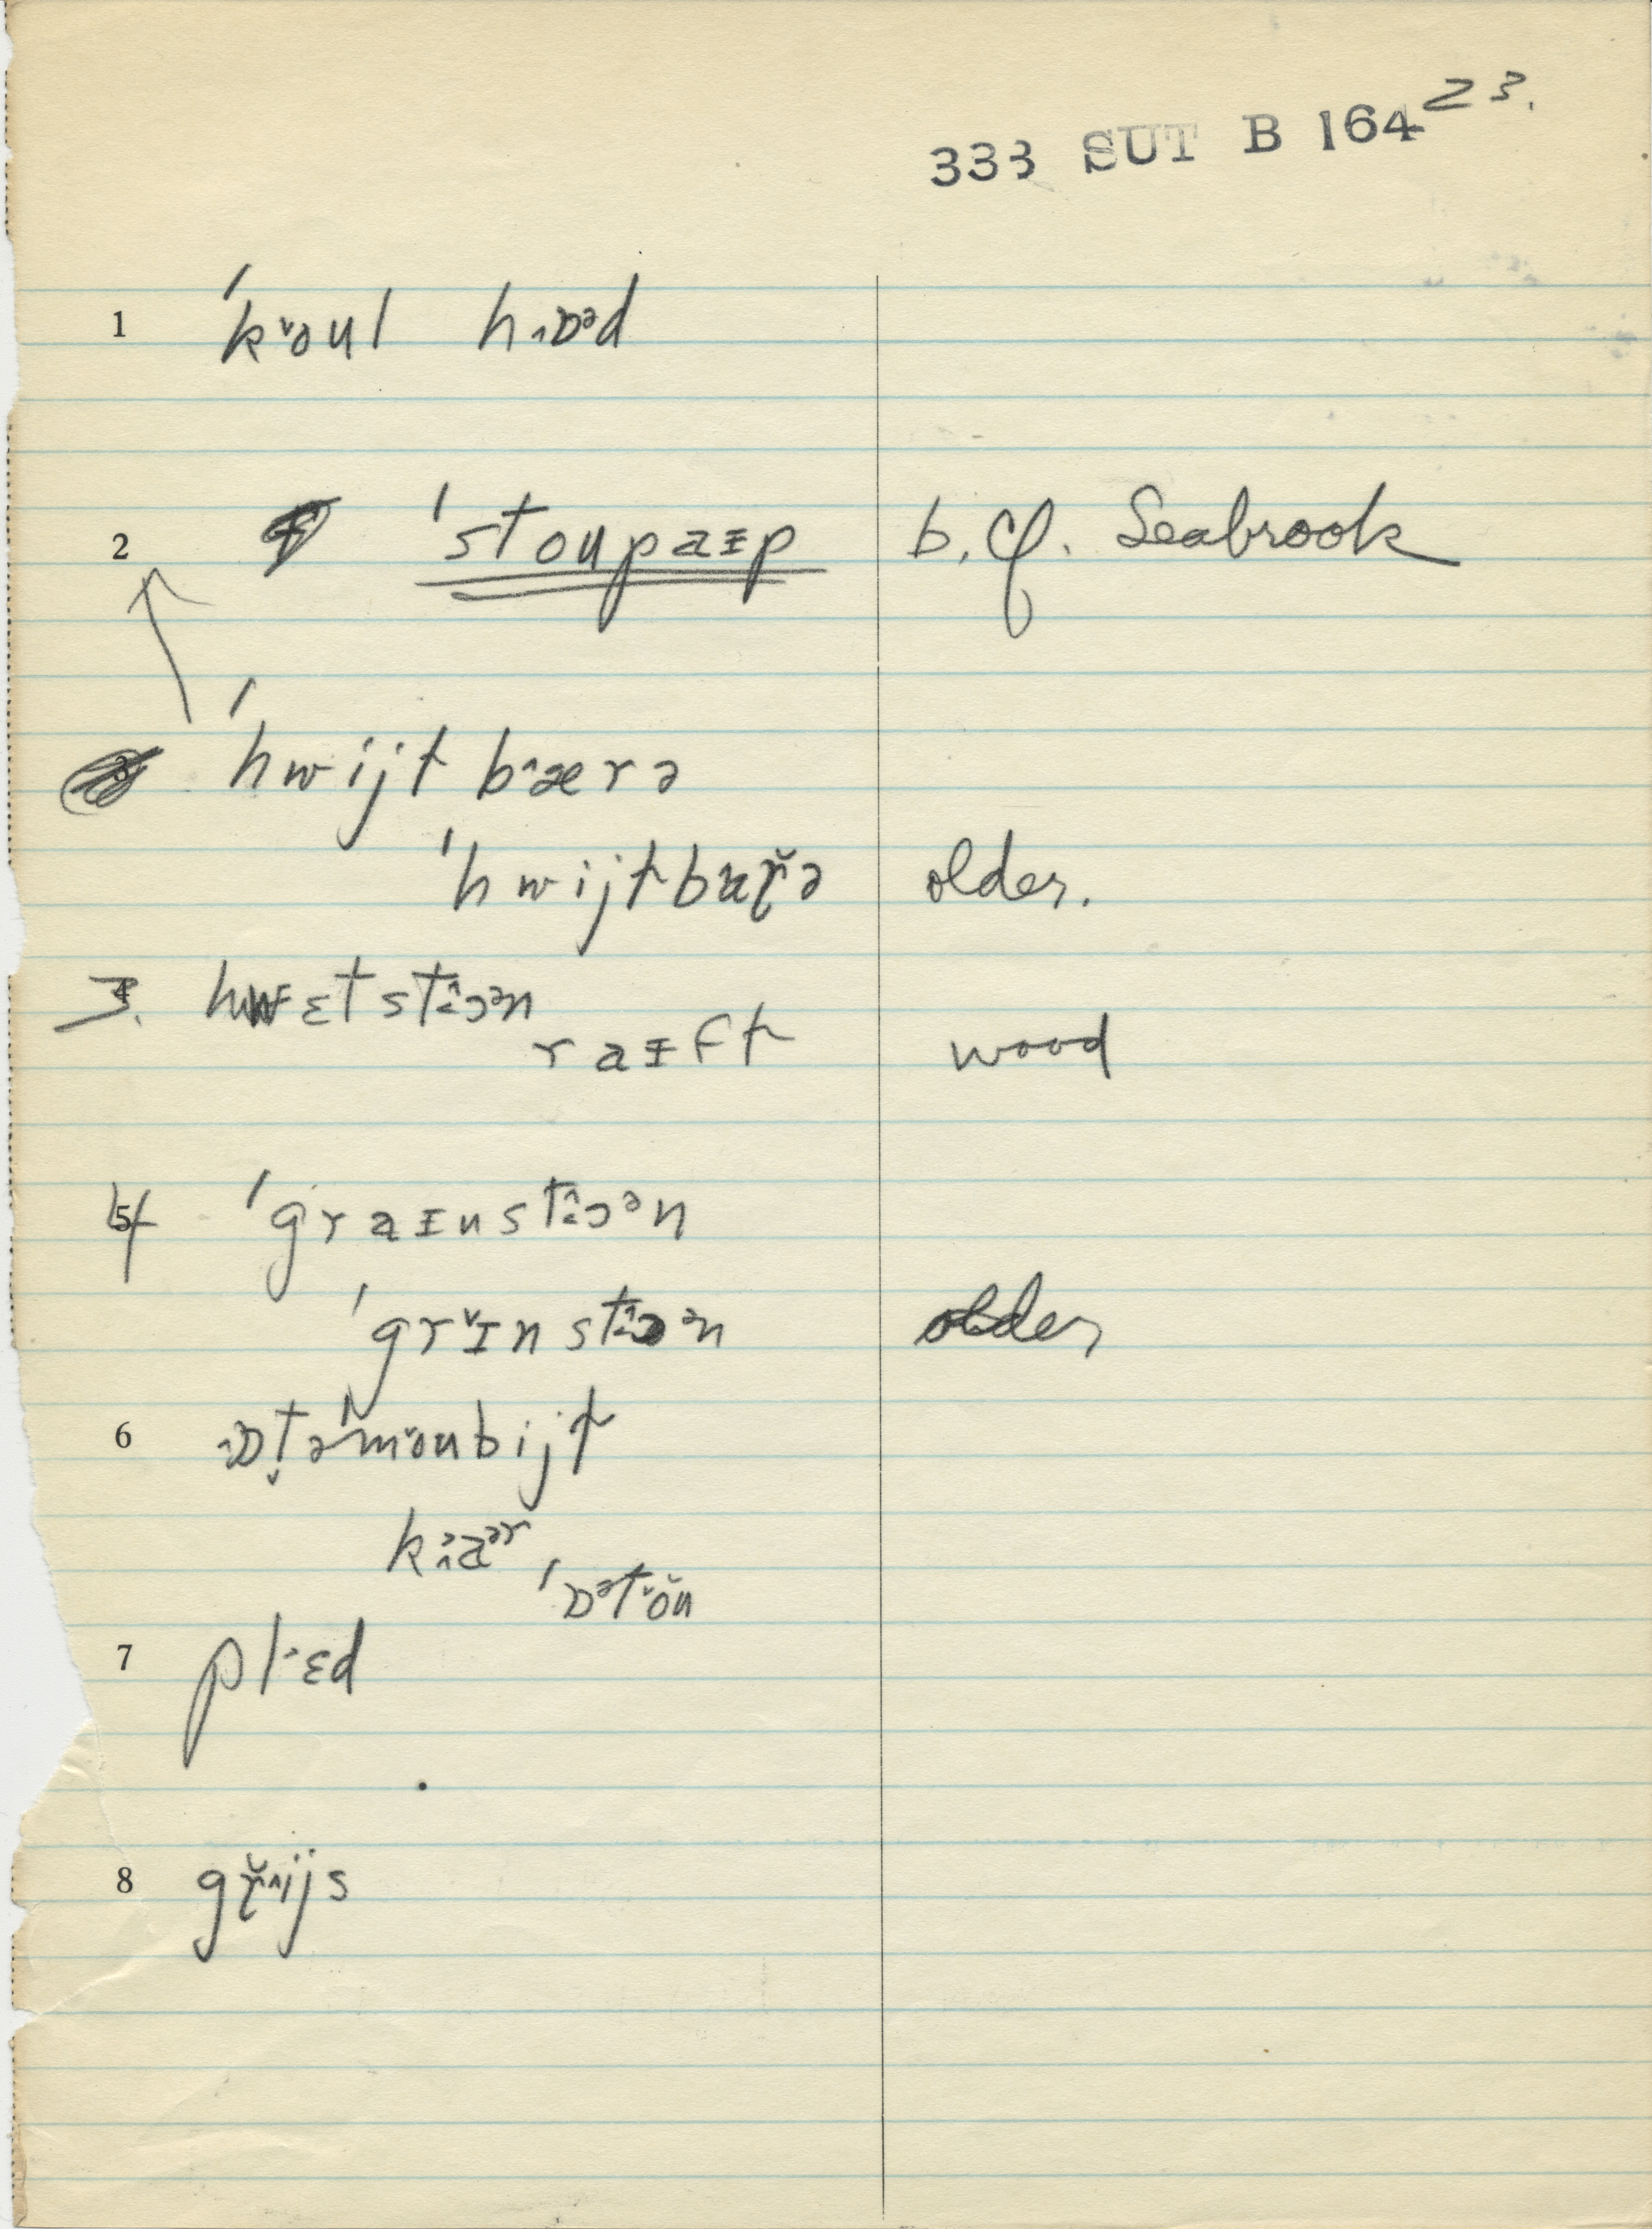 333 SUT B 164 23.
1 ˈkoul hɒəd
2 ˈstoupaɪp b. cf. Seabrook
ˈhwijt bærə
ˈhwijtbarə older.
3. hwɛtstɔən
raɪft wood
4 ˈgraɪnstɔən
ˈgrɪnstɔən older
6 ɒtəˈmoubijt
kaər
ˈɒətou
7 plɛd
8 grijs